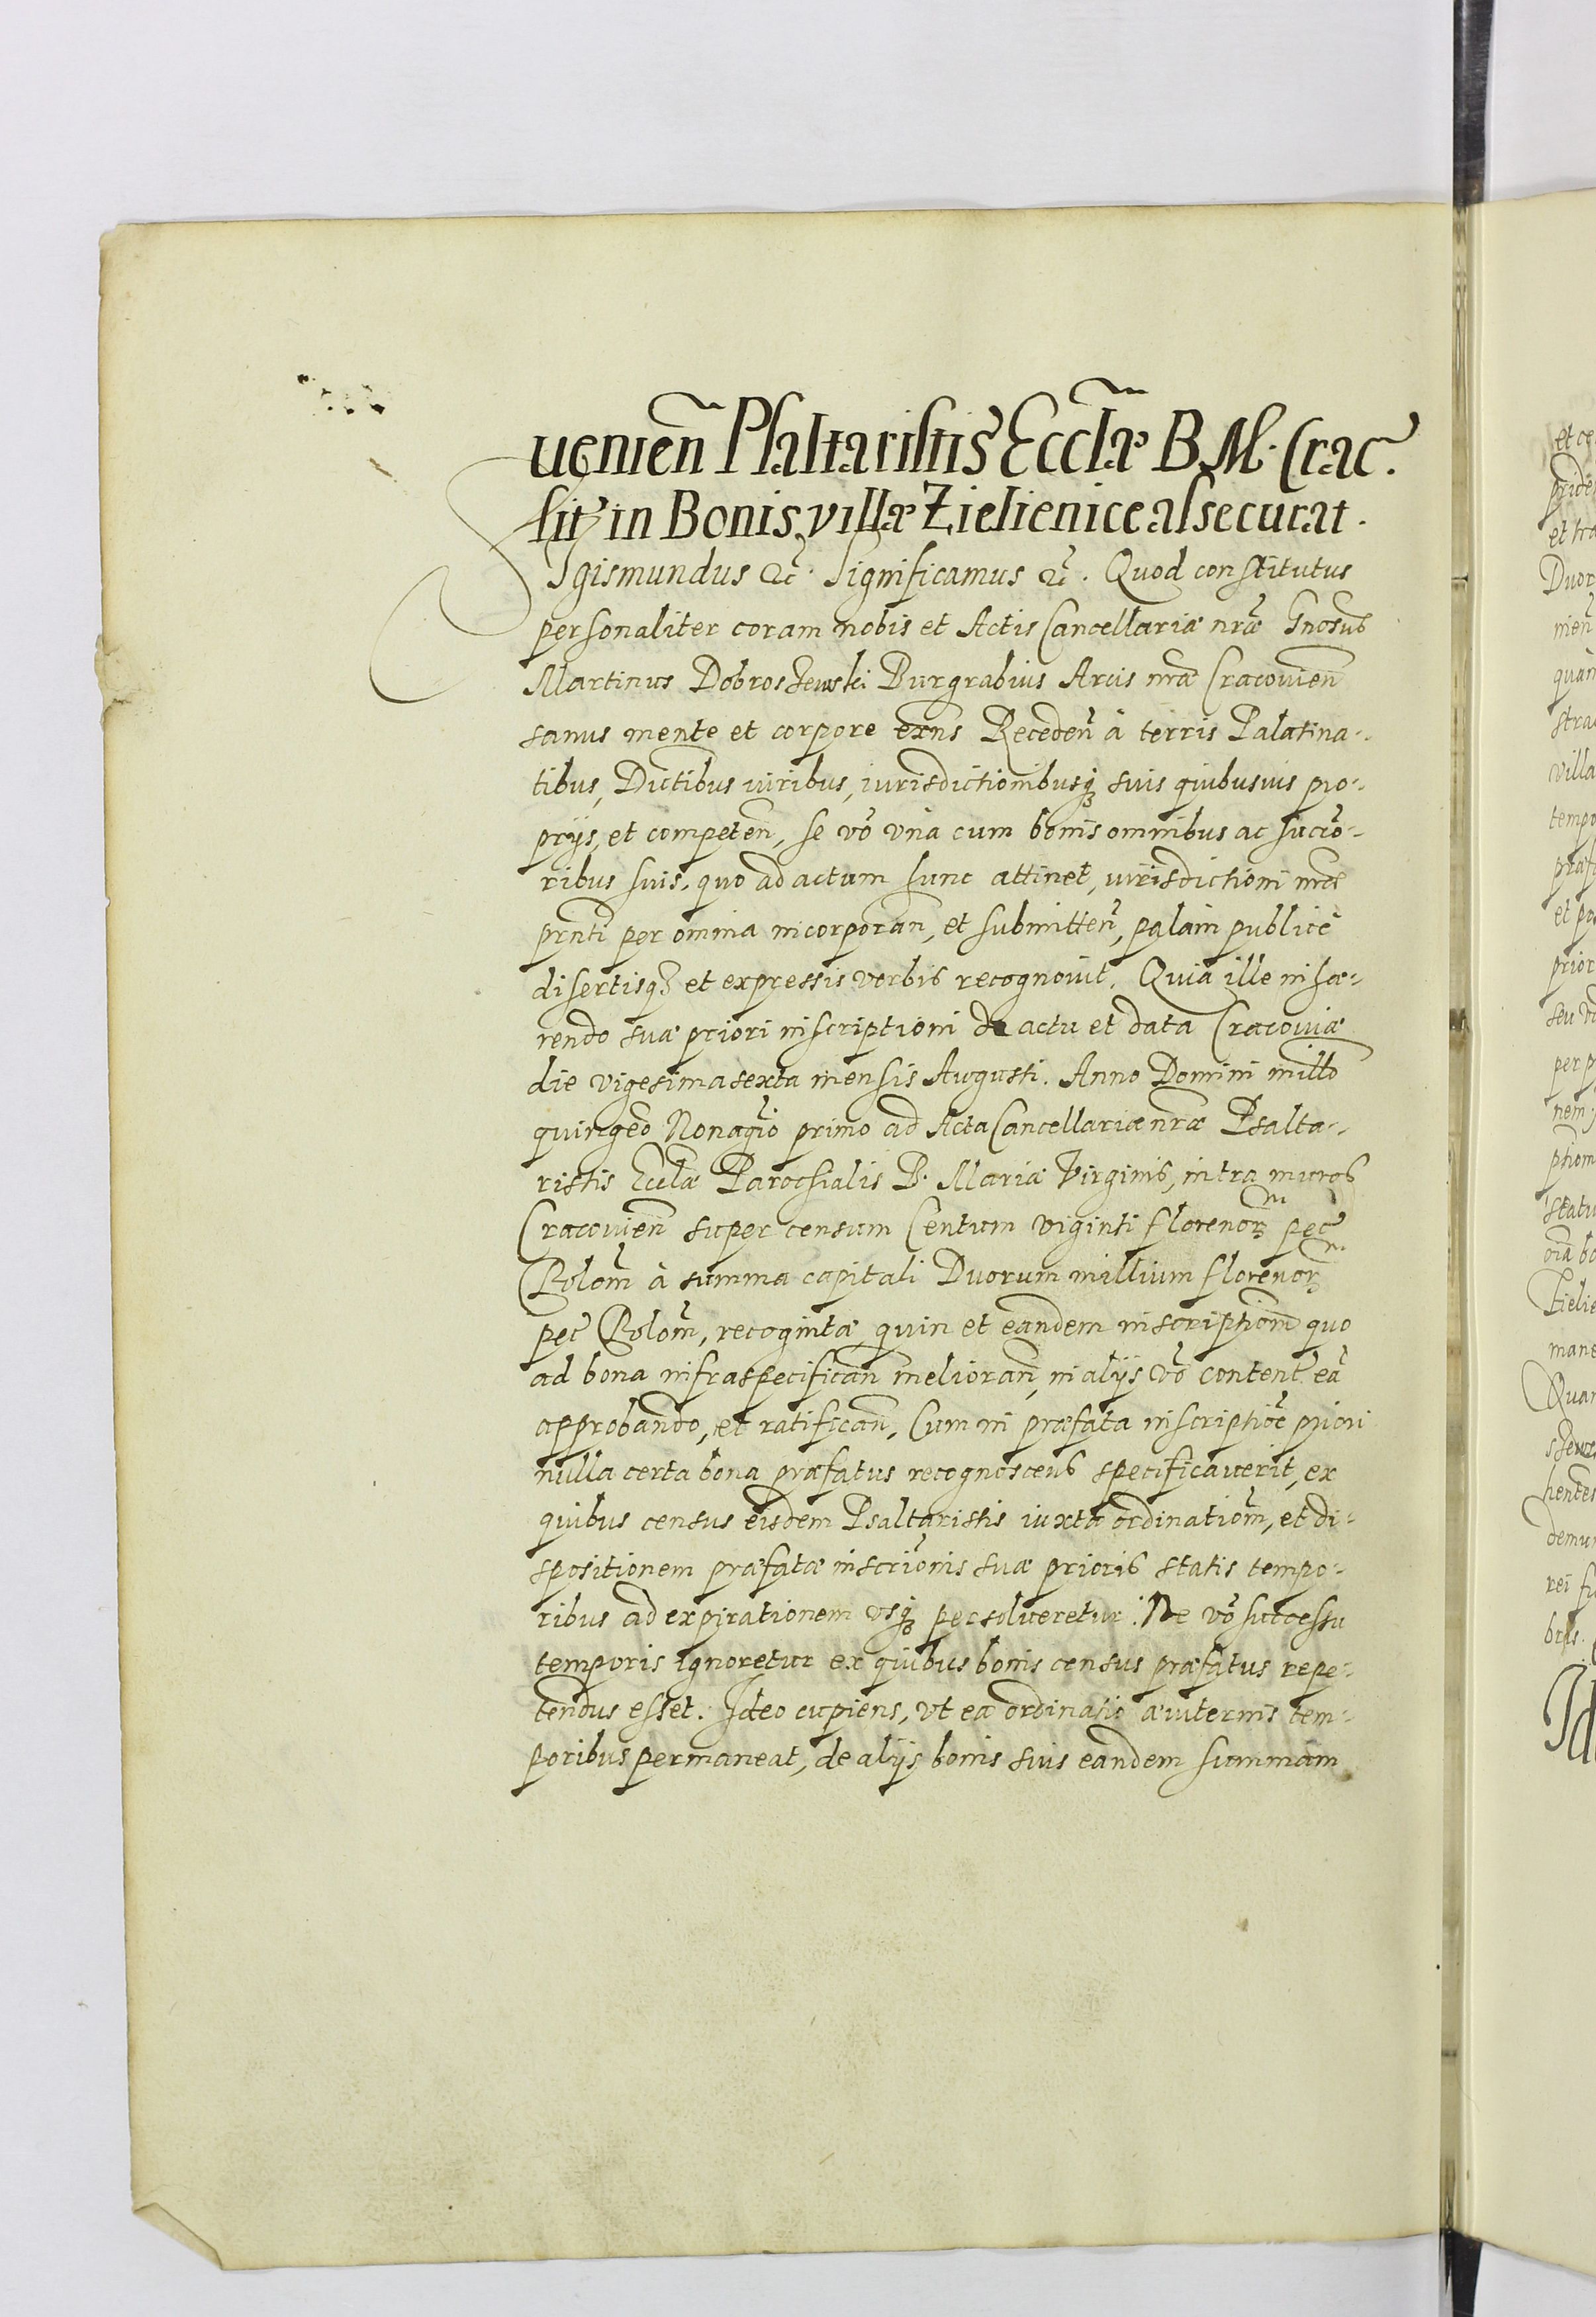 uenien̄ Psaltaristis Eccl̄æ B. M. Crac.
sit in Bonis villæ Zielienice assecurat.
Sigismundus &c̄. Significamus &c̄. Quod constitutus
personaliter coram nobis et Actis Cancellariæ nr̄æ Gnosus
Martinus Dobroszewski Burgrabius Arcis nr̄æ Cracouien̄
sanus mente et corpore exn̄s Receden̄ à terris Palatina-
tibus, Dictibus iuribus, iurisdictionibusq₃ suis quibusuis pro-
prijs, et competen̄, se vō vna cum bonis omnibus ac succō-
ribus suis, quo ad actum hunc attinet, iurisdictioni nr̄æ
prn̄ti per omnia incorporan̄, et submitten̄, palam publicè
disertisq₃ et expressis verbis recognouit. Quia ille inhæ-
rendo suæ priori inscriptioni de actu et data Cracouiæ
die vigesima sexta mensis Augusti. Anno Domini millō
quingēo Nonagiō primo ad Acta Cancellariæ nr̄æ Psalta-
ristis Eccl̄æ Parochialis B. Mariæ Virginis, intra muros
Cracouien̄ super censum Centum viginti florenor̄ pec̄
Polon̄ à summa capitali Duorum millium florenor̄
pec̄ Polon̄, recognitæ, quin et eandem inscriptionē quo
ad bona infraspecifican̄ melioran̄, in alijs vō content̄ eā
approbando, et ratifican̄. Cum in præfata inscriptiōe priori
nulla certa bona præfatus recognoscens specificauerit, ex
quibus census eisdem Psaltaristis iuxta ordinationē, et di-
spositionem præfatæ inscriōnis suæ prioris statis tempo-
ribus ad expirationem vsq₃ persolueretur. Ne vō successu
temporis ignoretur ex quibus bonis census præfatus repe-
tendus esset. Ideo cupiens, vt ea ordinatio æuiternis tem-
poribus permaneat, de alijs bonis suis eandem summam